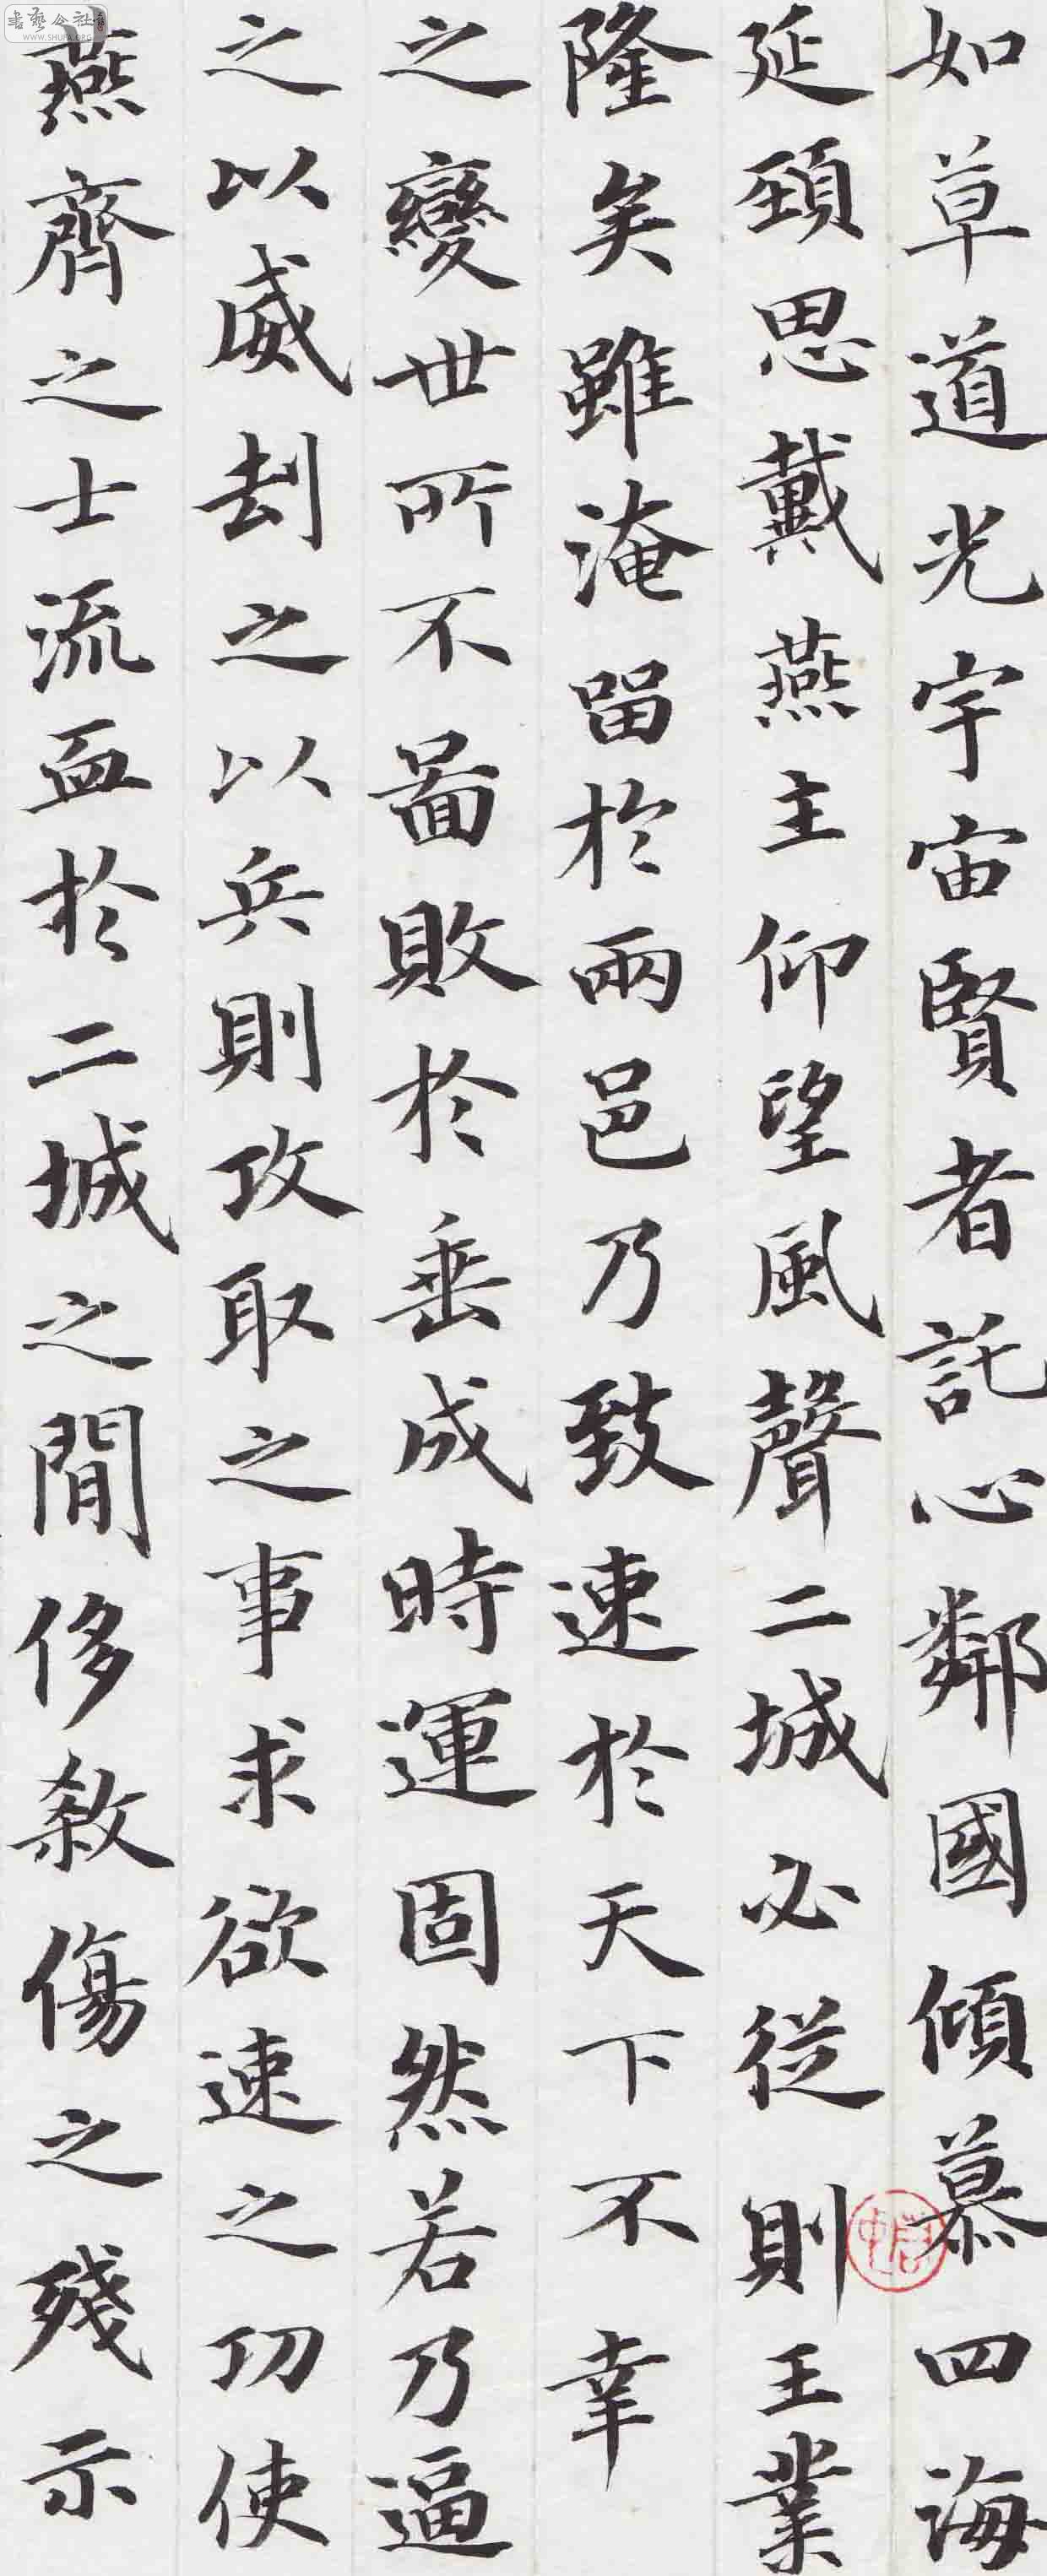 如草道光宇宙賢者託心鄰國傾慕四海
延頸思戴燕主仰望風聲二城必從則王業
隆矣雖淹留於兩邑乃致速於天下不幸
之變世所不啚敗於垂成時運固然若乃逼
之以威刦之以兵則攻取之事求欲速之功使
燕齊之士流血於二城之閒侈殺傷之殘示
書藝公社
WWW.SHUFA.ORG